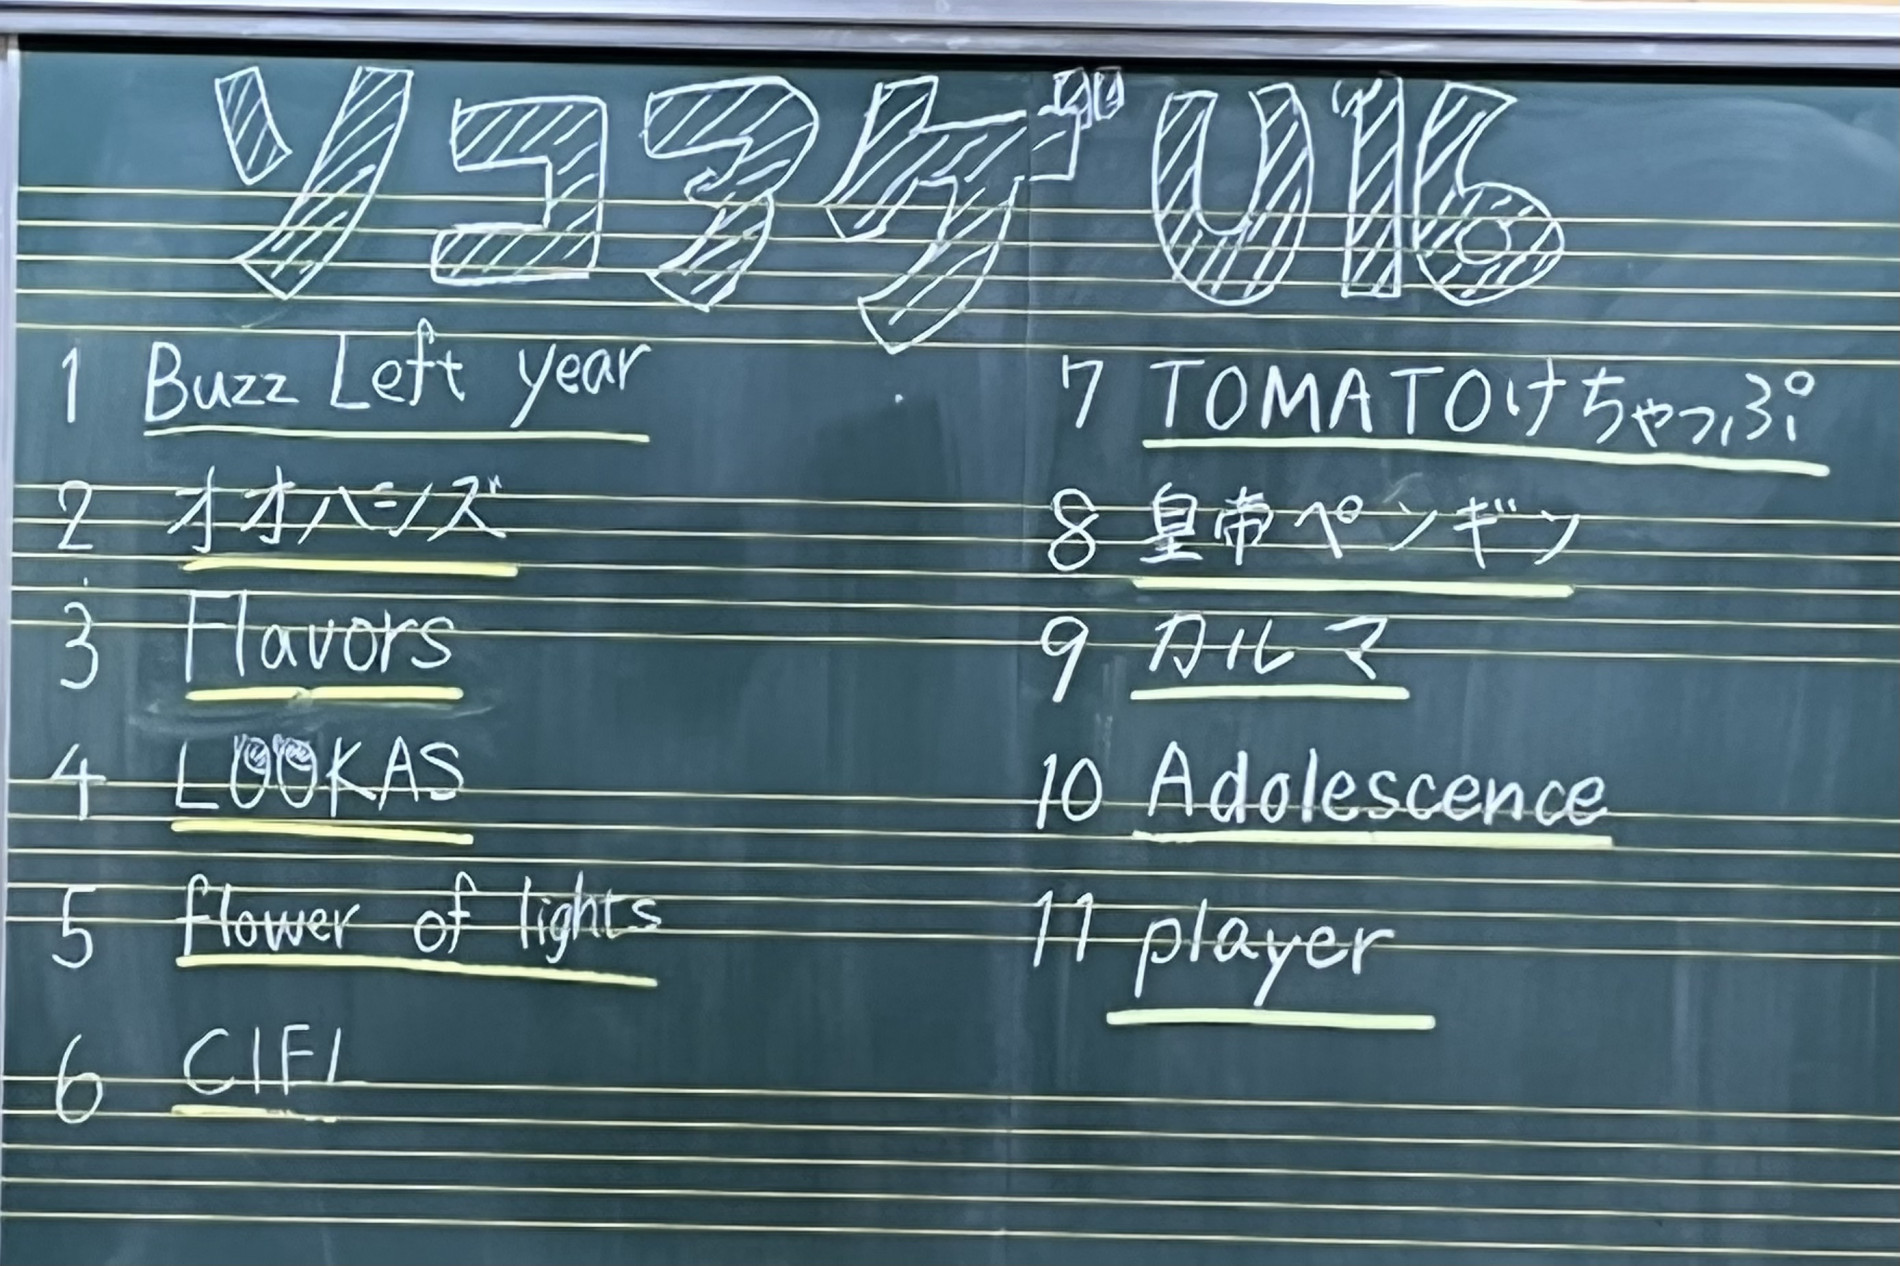 ソコアゲ U16
1 Buzz Left year
2 オオハシズ
3 Flavors
4 LOOKAS
5 flower of lights
6 CIEL
7 TOMATOけちゃっぷ゚
8 皇帝ペンギン
9 カルマ
10 Adolescence
11 player